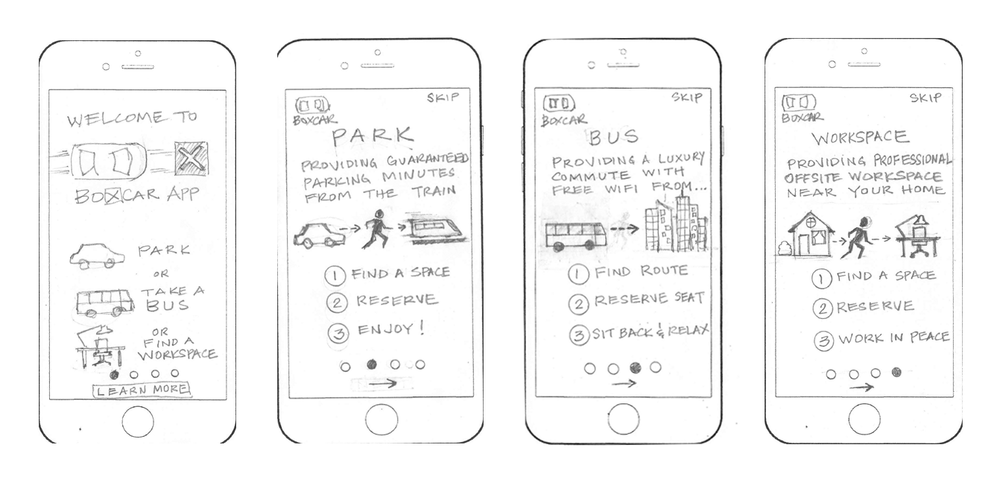 WELCOME TO
BOXCAR APP
PARK
OR
TAKE A
BUS
OR
FIND A
WORKSPACE
LEARN MORE
BOXCAR
SKIP
PARK
PROVIDING GUARANTEED
PARKING MINUTES
FROM THE TRAIN
1 FIND A SPACE
2 RESERVE
3 ENJOY!
BOXCAR
SKIP
BUS
PROVIDING A LUXURY
COMMUTE WITH
FREE WIFI FROM...
1 FIND ROUTE
2 RESERVE SEAT
3 SIT BACK & RELAX
BOXCAR
SKIP
WORKSPACE
PROVIDING PROFESSIONAL
OFFSITE WORKSPACE
NEAR YOUR HOME
1 FIND A SPACE
2 RESERVE
3 WORK IN PEACE